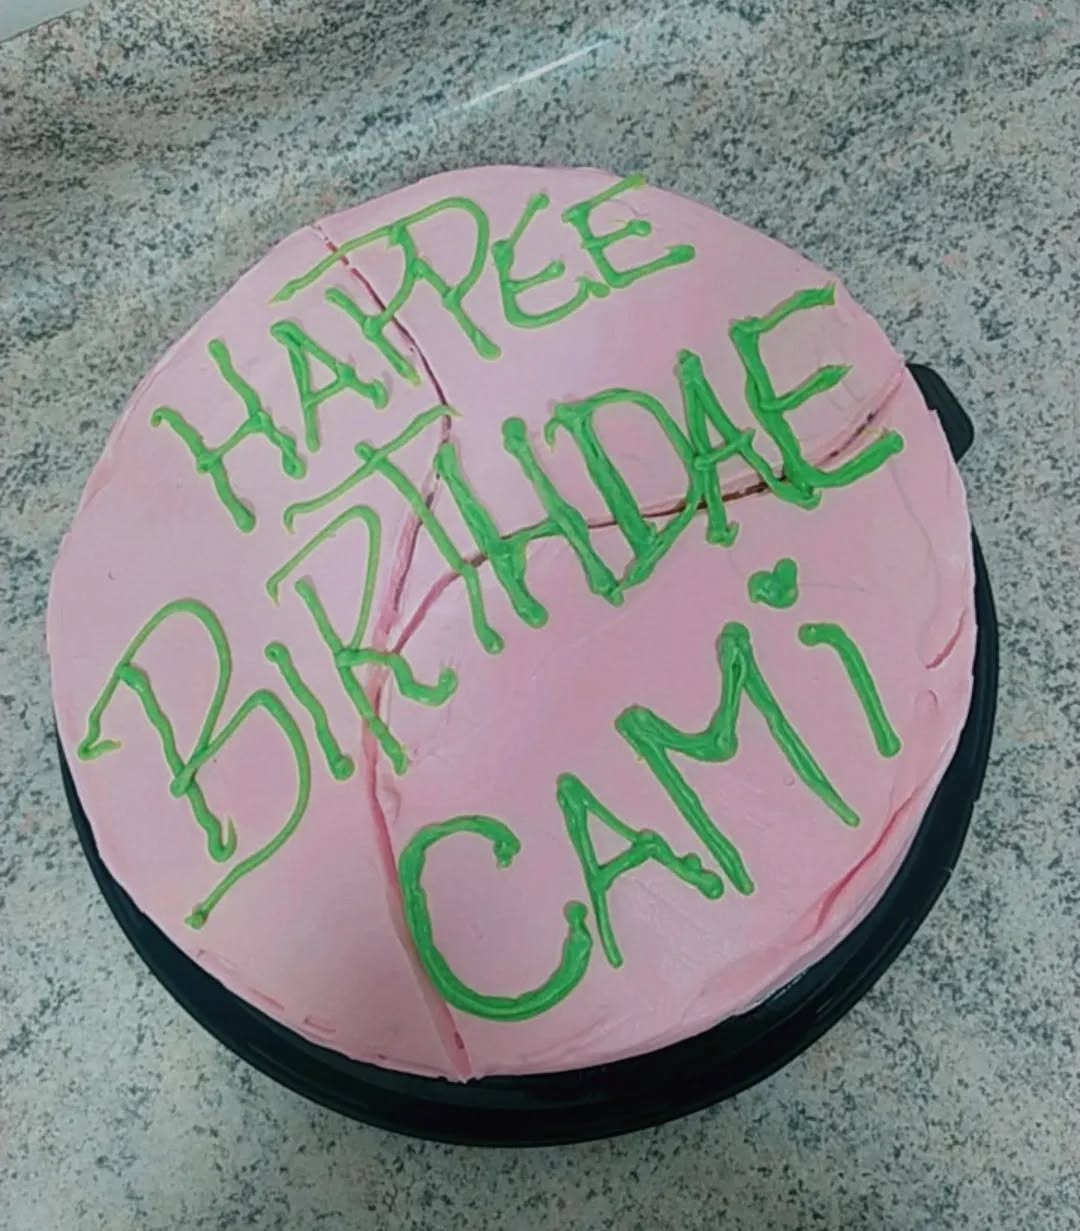 HAPPEE
BIRTHDAE
CAMi